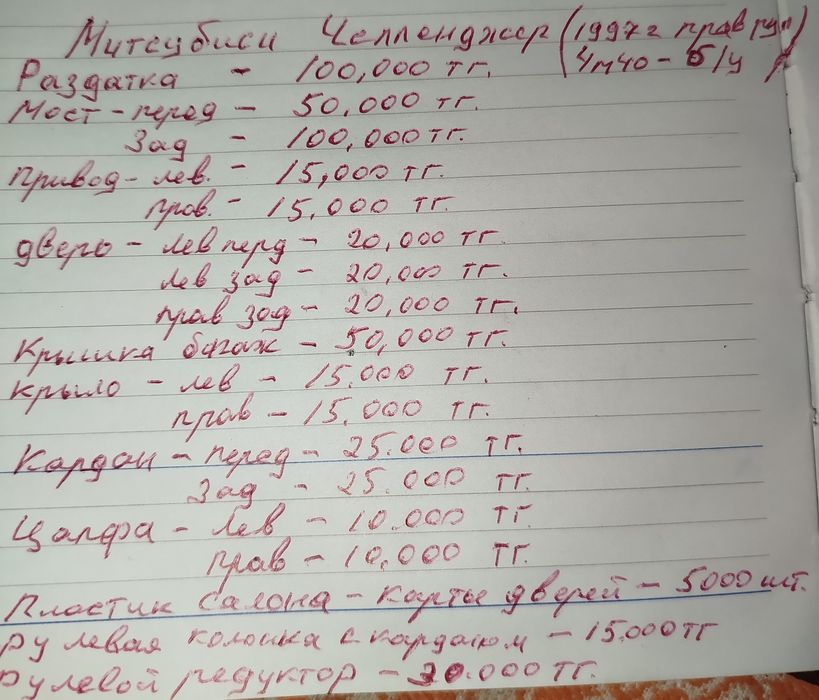 Митсубиси Челленджер (1997г прав рул)
Раздатка - 100,000 тг. (4м40 - б/у)
Мост - перед - 50.000 тг.
Зад - 100,000 тг.
Привод - лев. - 15,000 тг.
прав. - 15.000 тг.
дверь - лев перд - 20,000 тг.
лев зад - 20,000 тг.
прав зад - 20,000 тг.
Крышка багаж - 50,000 тг.
Крыло - лев - 15.000 тг.
прав - 15.000 тг.
Кардан - перед - 25.000 тг.
Зад - 25.000 тг.
Цапфа - лев - 10.000 тг.
прав - 10,000 тг.
Пластик салона - карты дверей - 5000 шт.
рулевая колонка с карданом - 15.000 тг
рулевой редуктор - 30.000 тг.